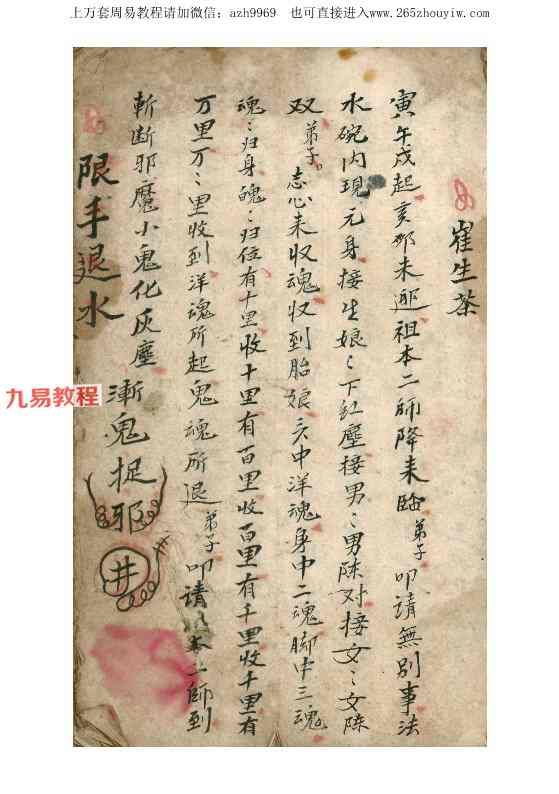 上万套周易教程请加微信：azh9969　也可直接进入www.265zhouyiw.com
崔生茶
寅午戌起亥卯未 祖本二師降来臨弟子叩請無别事法
水碗内現元身接生娘〻下紅塵接男〻男陈对接女〻女陈
双弟子。志心来收魂収到胎娘 中洋魂身中二魂脚中三魂
魂〻归身魄〻归位有十里收十里有百里收百里有千里收千里有
万里万〻里收到洋魂所起鬼魂所退弟子叩請 本二師到
斬断邪魔小鬼化灰塵
漸鬼捉邪
井
限手退水
九易教程